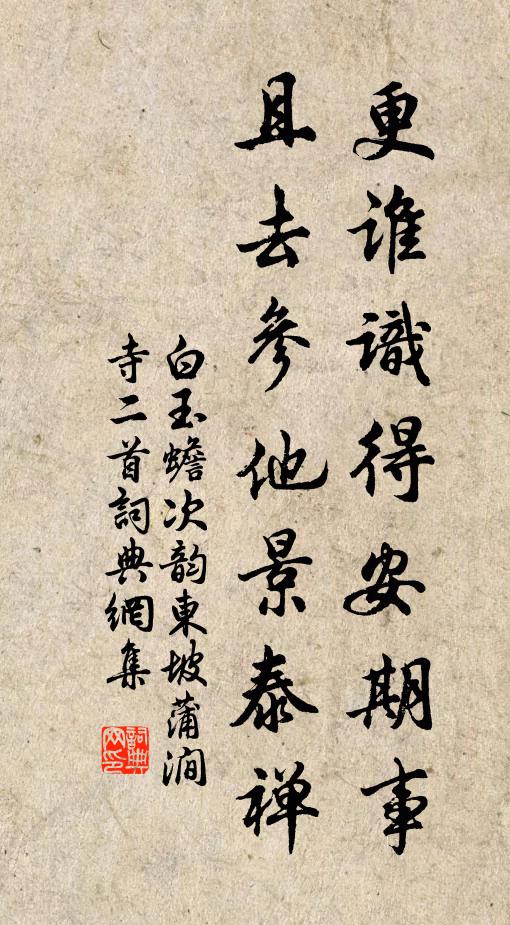 更誰識得安期事
且去參他景泰禅
白玉蟾次韵東坡蒲澗
寺二首詞典網集
詞典
网印